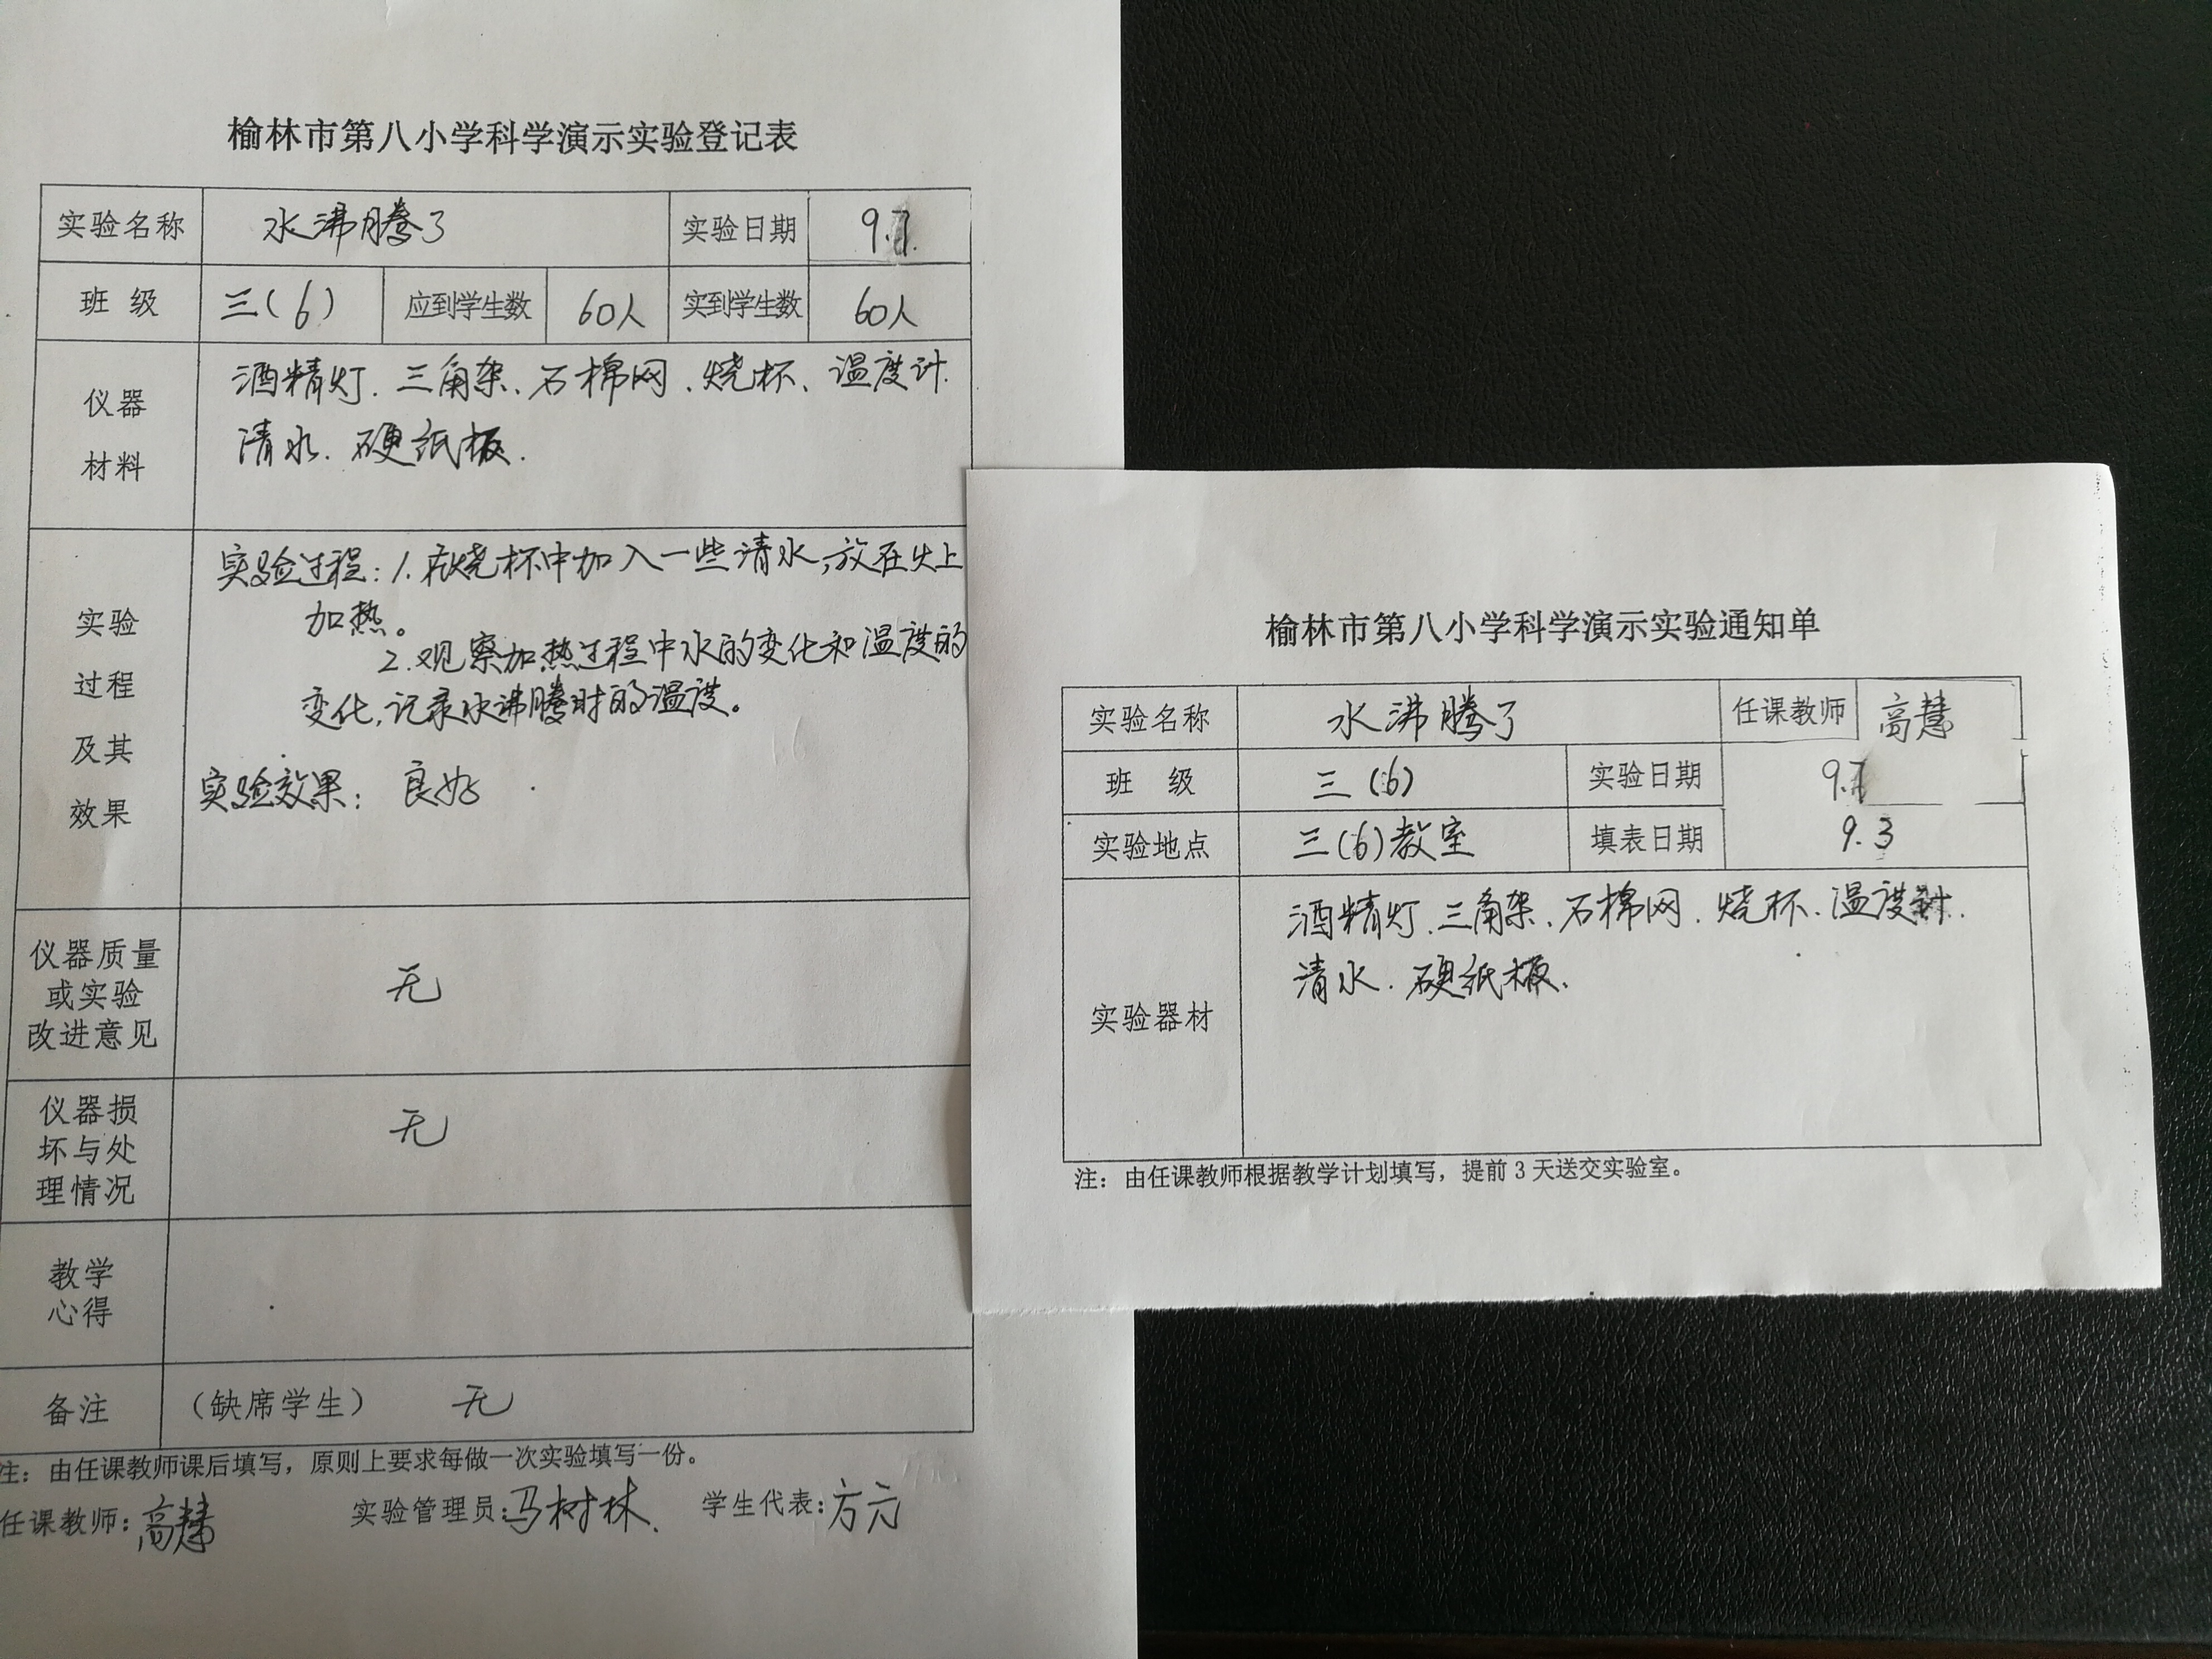 榆林市第八小学科学演示实验登记表
实验名称 水沸腾了 实验日期 9.7.
班 级 三(6) 应到学生数 60人 实到学生数 60人
仪器
材料
酒精灯.三角架、石棉网.烧杯、温度计.
清水.硬纸板.
实验
过程
及其
效果
实验过程:1.在烧杯中加入一些清水,放在火上
加热。
2.观察加热过程中水的变化和温度的
变化,记录水沸腾时的温度。
实验效果: 良好
仪器质量
或实验
改进意见
无
仪器损
坏与处
理情况
无
教学
心得
备注 (缺席学生) 无
注:由任课教师课后填写,原则上要求每做一次实验填写一份。
任课教师:高慧 实验管理员:马树林. 学生代表:方元
榆林市第八小学科学演示实验通知单
实验名称 水沸腾了 任课教师 高慧
班 级 三(6) 实验日期 9.7
实验地点 三(6)教室 填表日期 9.3
实验器材
酒精灯.三角架、石棉网.烧杯.温度计.
清水.硬纸板.
注:由任课教师根据教学计划填写,提前3天送交实验室。